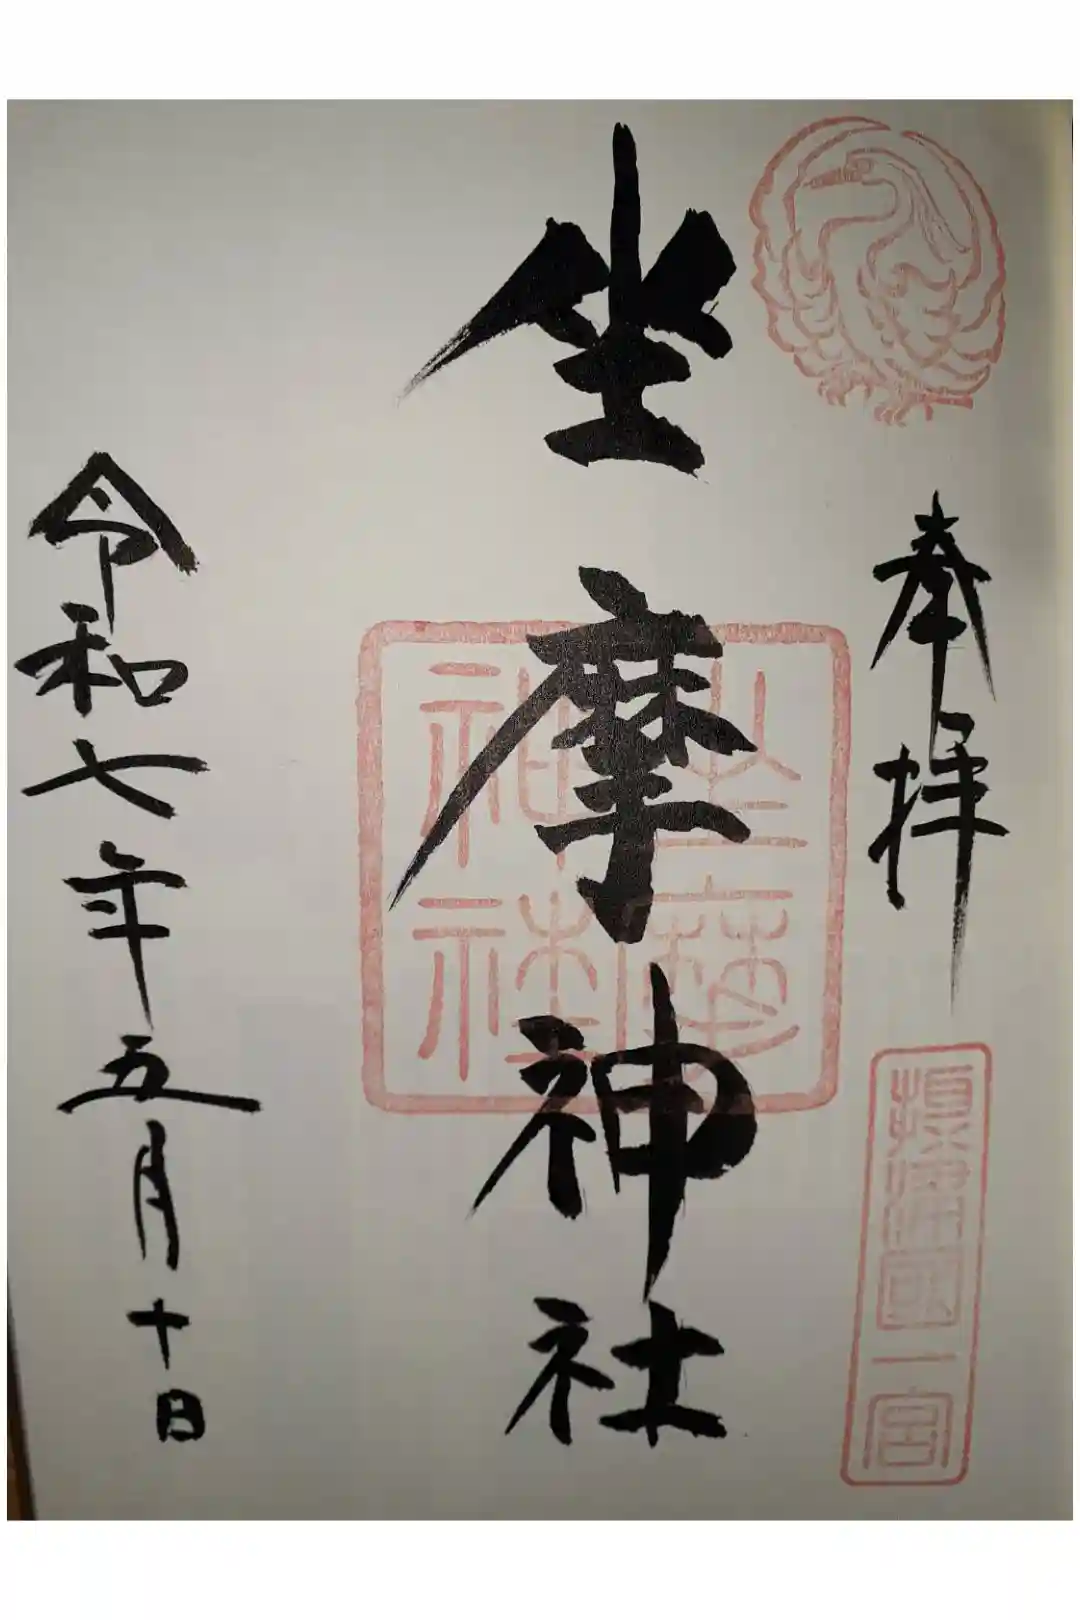 奉拝
攝津國一宮
坐摩神社
坐摩
神社
令和七年五月十日